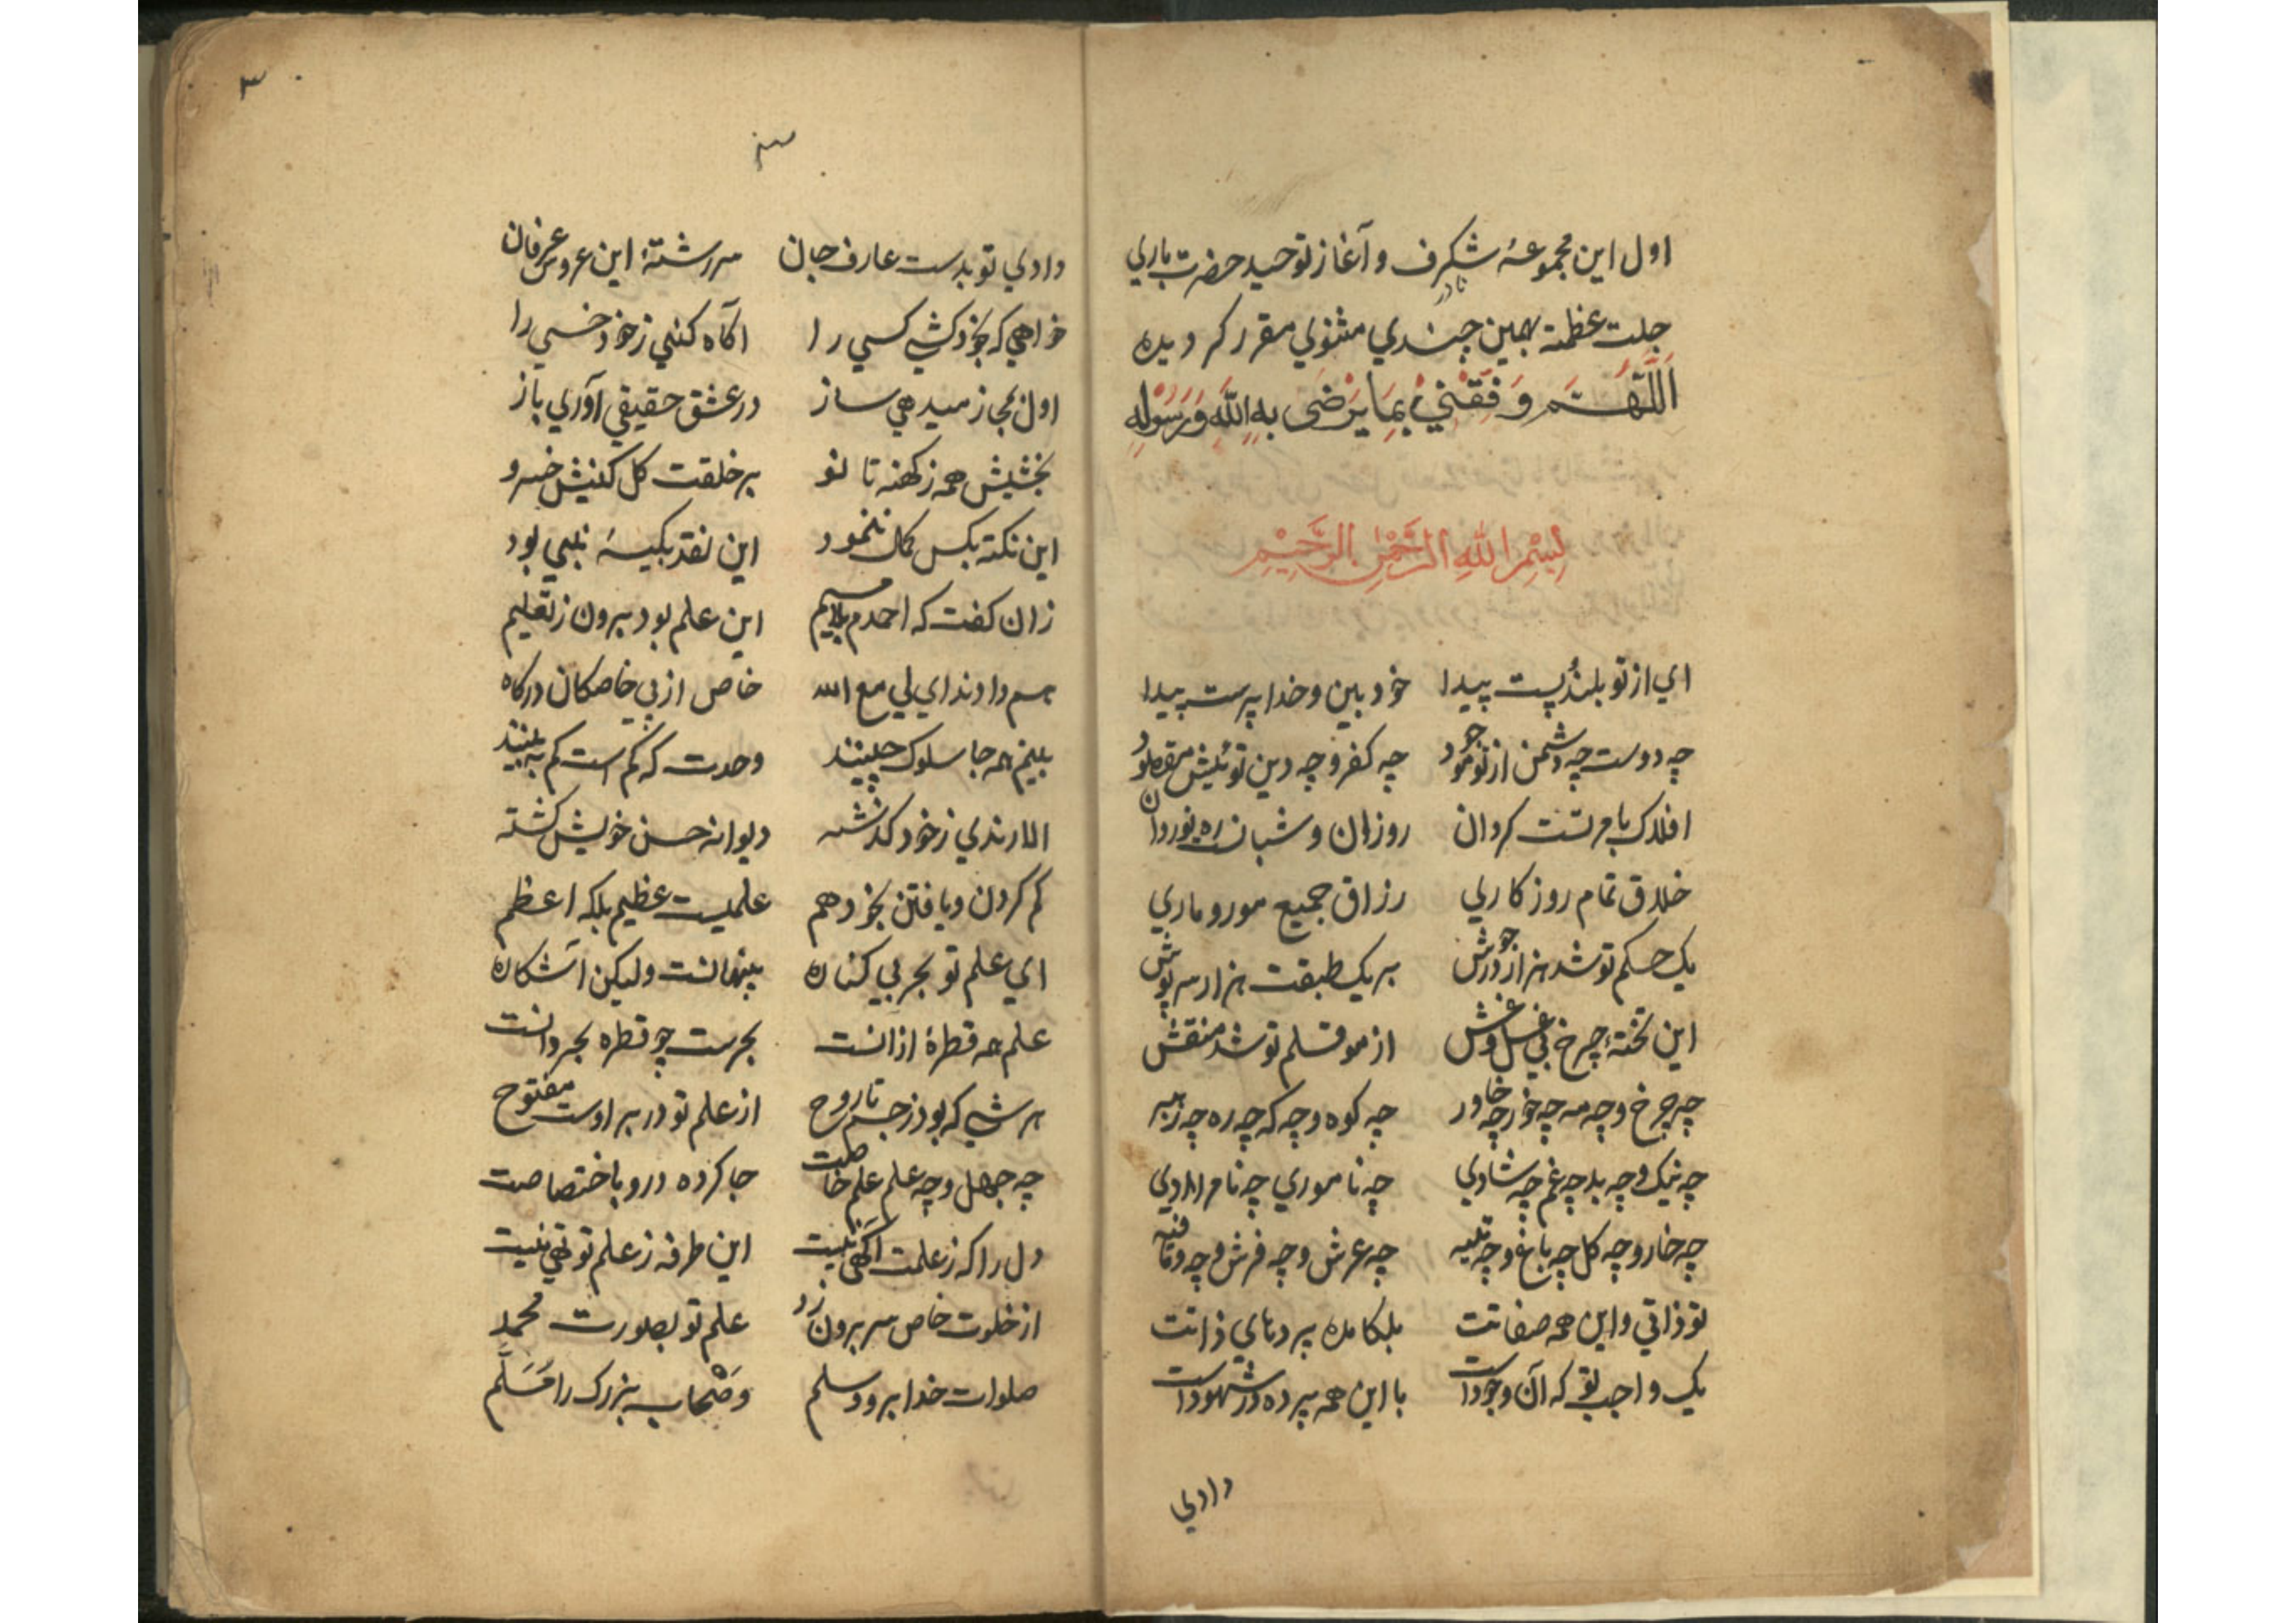 اول این مجموعهٔ شکرف و آغاز توحید حضرت باری
نادر
جلت عظمته بهمین چندی مثنوی مقرر کردیده
اَللّٰهُمَّ وَفِّقْنِيْ بِمَا يَرْضٰى بِهِ اللّٰهُ وَرَسُوْلُهُ
بِسْمِ اللّٰهِ الرَّحْمٰنِ الرَّحِيْمِ
ای از تو بلند و پست پیدا خود بین و خدا پرست پیدا
چه دوست چه دشمن از تو موجود چه کفر و چه دین توئیش مقصود
افلاک بامر تست کردان روزان و شبان ره نوردان
خلاق تمام روزکاری رزاق جمیع مور و ماری
یک حکم تو شد هزار در جوش بر یک طبقت هزار سرپوش
این تختهٔ چرخ بی غل و غش از مو قلم تو شد منقش
چه چرخ و چه مه چه خور چه خاور چه کوه و چه که چه ره چه رهبر
چه نیک و چه بد چه غم چه شادی چه ناموری چه نامرادی
چه خار و چه کل چه باغ و چه عرش و چه فرش و چه
تو ذاتی و این همه صفاتت بلکامده پردهای ذاتت
یک واجب تو که آن وجود است با این همه پرده در شهود است
دادی
۳
دادی تو بدست عارف جان سررشتهٔ این عروس عرفان
خواهی که بخود کشی کسی را اکاه کنی ز خود خسی را
اول بمجاز میدهی ساز در عشق حقیقی آوری باز
بخشیش همه ز کهنه تا نو بر خلقت کل کنیش خسرو
این نکته بکس کمان ننمود این نقد بکیسهٔ نبی بود
زان کفت که احمدم بلا میم این علم بود برون ز تعلیم
هم داد ندای لی مع الله خاص از پی خاصکان درکاه
بینم همه جا سلوک وحدت که کم است کم
الا رندی ز خود کذشته دیوانه حسن خویش کشته
کم کردن و یافتن بخود هم علمیست عظیم بلکه اعظم
ای علم تو بحر بی کناره پنهانست ولیکن آشکاره
علم همه قطرهٔ ازانست بحرست چو قطره بحر دانست
هر شی که بود ز جسم تا روح از علم تو در بر اوست مفتوح
چه جهل و چه علم علم خاصت جا کرده درو باختصاصت
دل را که ز علمت آکهی نیست این طرفه ز علم تو تهی نیست
از خلوت خاص سر برون زد علم تو بصورت محمد
صلوات خدا برو و سلم وصحاب بزرک را مسلم